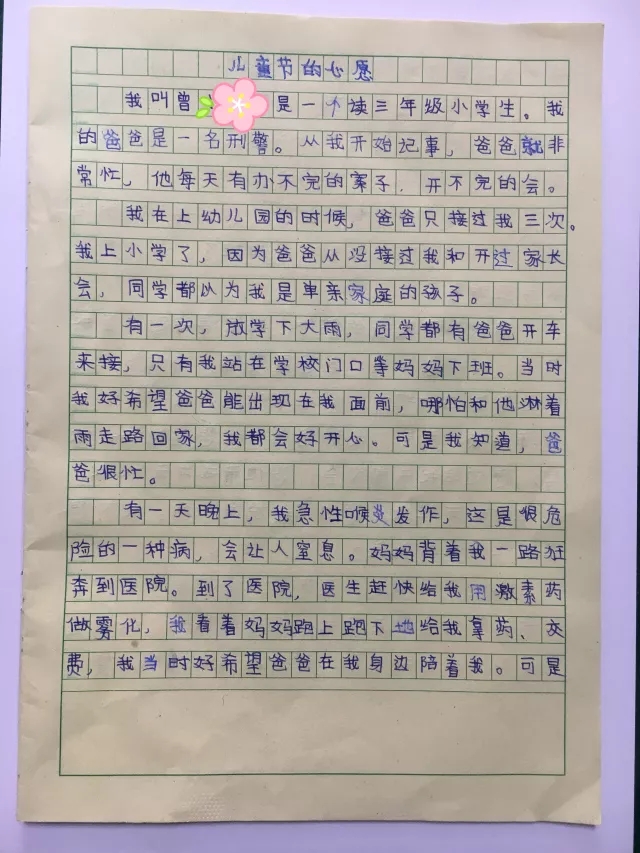 儿童节的心愿
我叫曾是一个读三年级小学生。我
的爸爸是一名刑警。从我开始记事，爸爸就非
常忙，他每天有办不完的案子，开不完的会。
我在上幼儿园的时候，爸爸只接过我三次。
我上小学了，因为爸爸从没接过我和开过家长
会，同学都以为我是单亲家庭的孩子。
有一次，放学下大雨，同学都有爸爸开车
来接，只有我站在学校门口等妈妈下班。当时
我好希望爸爸能出现在我面前，哪怕和他淋着
雨走路回家，我都会好开心。可是我知道，爸
爸很忙。
有一天晚上，我急性喉炎发作，这是很危
险的一种病，会让人窒息。妈妈背着我一路狂
奔到医院。到了医院，医生赶快给我用激素药
做雾化，我看着妈妈跑上跑下地给我拿药、交
费，我当时好希望爸爸在我身边陪着我。可是